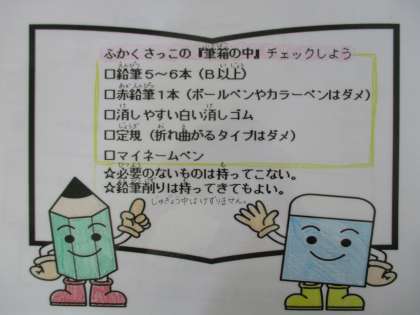 ふかくさっこの『筆箱の中』チェックしよう
□鉛筆5～6本（B以上）
□赤鉛筆1本（ボールペンやカラーペンはダメ）
□消しやすい白い消しゴム
□定規（折れ曲がるタイプはダメ）
□マイネームペン
☆必要のないものは持ってこない。
☆鉛筆削りは持ってきてもよい。
じゅぎょう中はけずりません。